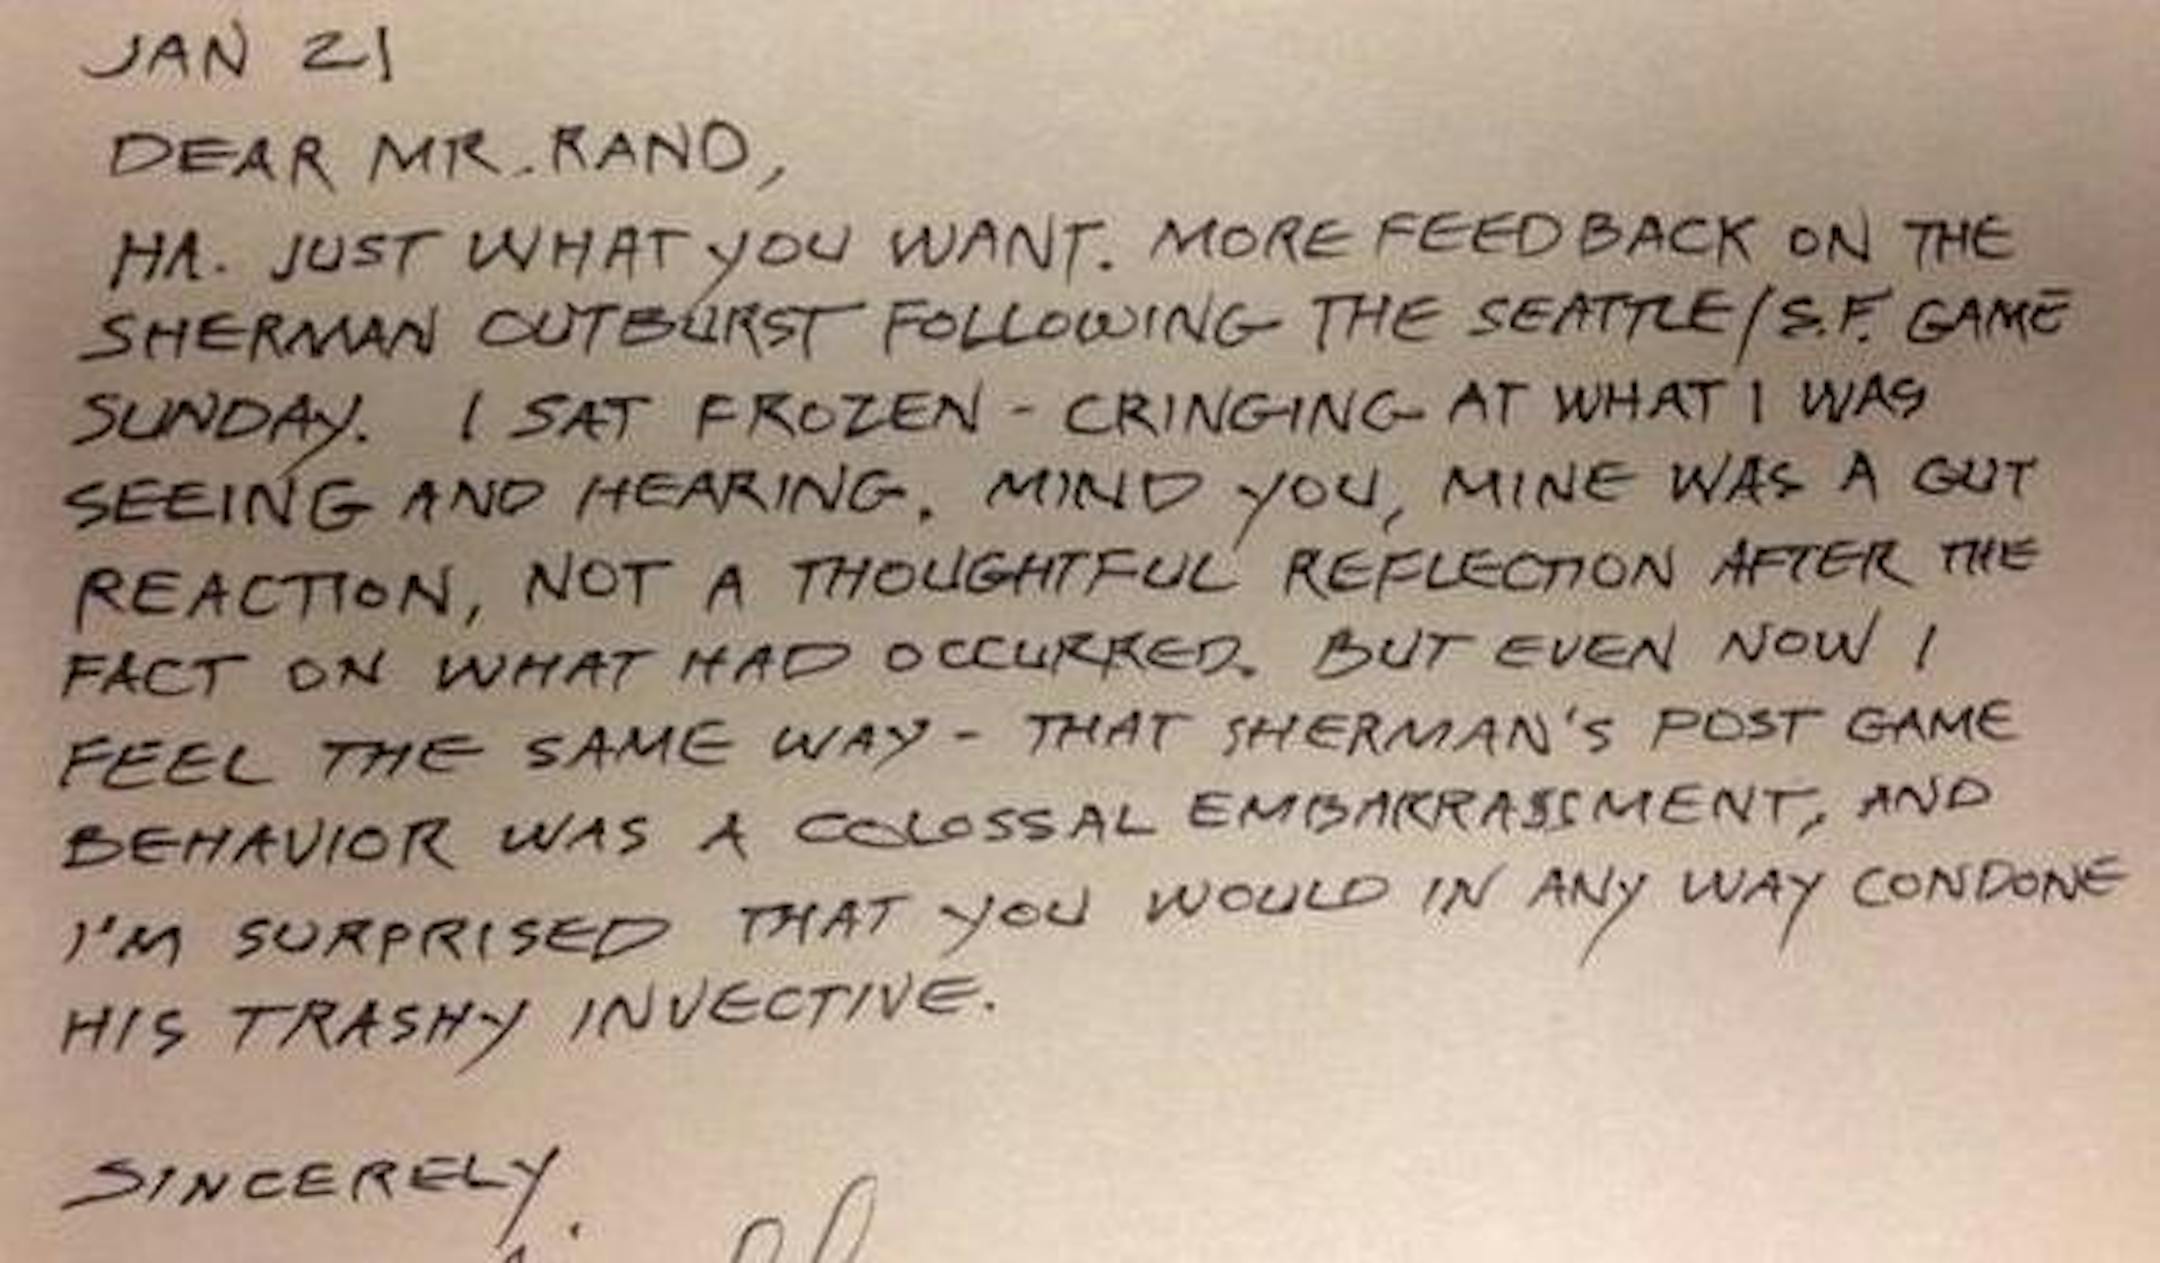 JAN 21
DEAR MR. RAND,
HA. JUST WHAT YOU WANT. MORE FEEDBACK ON THE
SHERMAN OUTBURST FOLLOWING THE SEATTLE/S.F. GAME
SUNDAY. I SAT FROZEN - CRINGING AT WHAT I WAS
SEEING AND HEARING. MIND YOU, MINE WAS A GUT
REACTION, NOT A THOUGHTFUL REFLECTION AFTER THE
FACT ON WHAT HAD OCCURRED. BUT EVEN NOW I
FEEL THE SAME WAY - THAT SHERMAN'S POST GAME
BEHAVIOR WAS A COLOSSAL EMBARRASSMENT, AND
I'M SURPRISED THAT YOU WOULD IN ANY WAY CONDONE
HIS TRASHY INVECTIVE.
SINCERELY